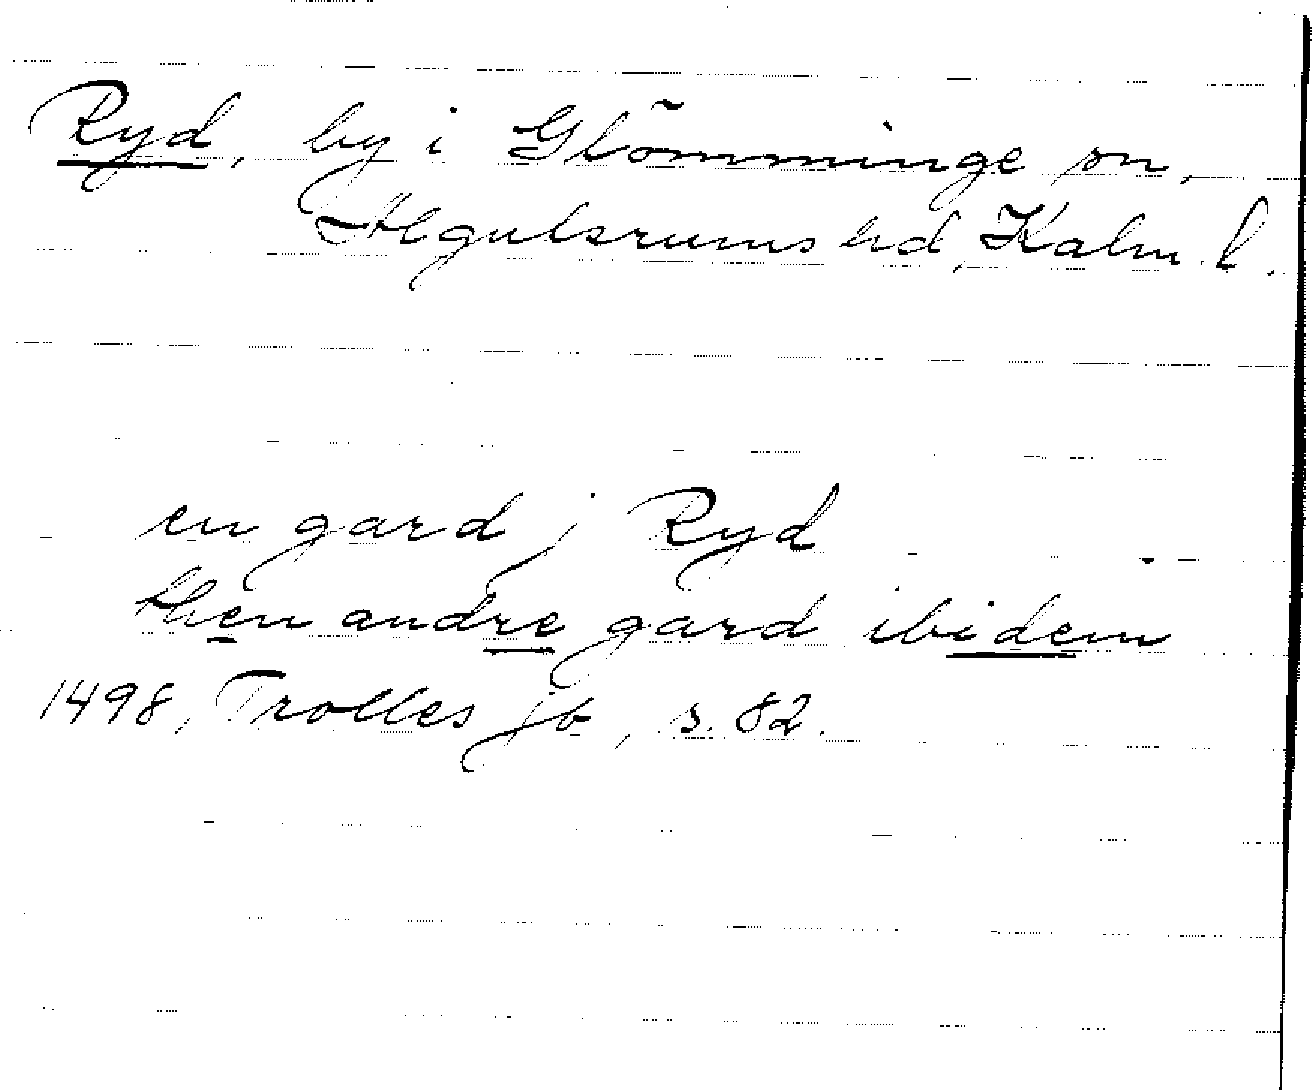 Ryd, by i Glömminge sn,
Algutsrums hd, Kalm. l.
en gard j Ryd
then andre gard ibidem
1498, Trolles jb, s. 82.